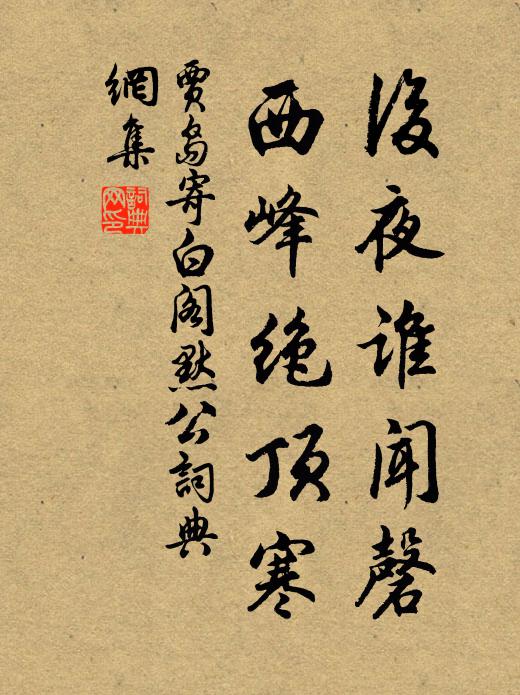 後夜誰聞磬
西峰絶頂寒
賈島寄白閣默公詞典
網集
詞典
网印